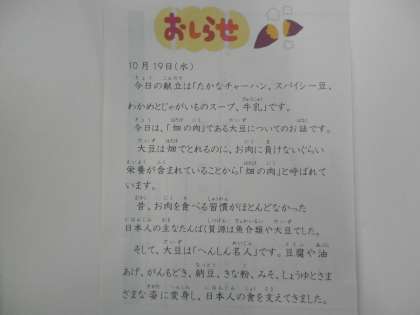 おしらせ
10月19日(水)
今日の献立は「たかなチャーハン、スパイシー豆、
わかめとじゃがいものスープ、牛乳」です。
今日は、「畑の肉」である大豆についてのお話です。
大豆は畑でとれるのに、お肉に負けないぐらい
栄養が含まれていることから「畑の肉」と呼ばれて
います。
昔、お肉を食べる習慣がほとんどなかった
日本人の主なたんぱく質源は魚介類や大豆でした。
そして、大豆は「へんしん名人」です。豆腐や油
あげ、がんもどき、納豆、きな粉、みそ、しょうゆとさま
ざまな姿に変身し、日本人の食を支えてきました。